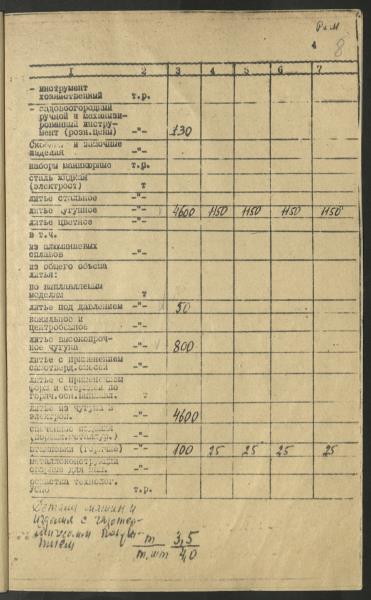 4 8
1 2 3 4 5 6 7
- инструмент
хозяйственный т.р.
- садовоогородный
ручной и механизи-
рованный инстру-
мент (розн.цены) -"- 130
Скобяные и замочные
изделия -"-
наборы маникюрные т.р.
сталь жидкая
(электрост) т
литье стальное -"-
литье чугунное -"- 4600 1150 1150 1150 1150
литье цветное -"-
в т.ч.
из алюминиевых
сплавов -"-
из общего объема
литья:
по выплавляемым
моделям т
литье под давлением -"- 50
кокильное и
центробежное -"-
литье высокопроч-
ное чугуна -"- 800
литье с применением
самотверд.смесей -"-
литье с применением
форм и стержней по
т
литье из чугуна в
электроп. -"- 4600
спеченные изделия
-"-
штамповки (горячие) -"- 100 25 25 25 25
металлоконструкции
-"-
оснастка технолог.
т.р.
Детали машин и
изделия с
т 3,5
т.шт 4,0